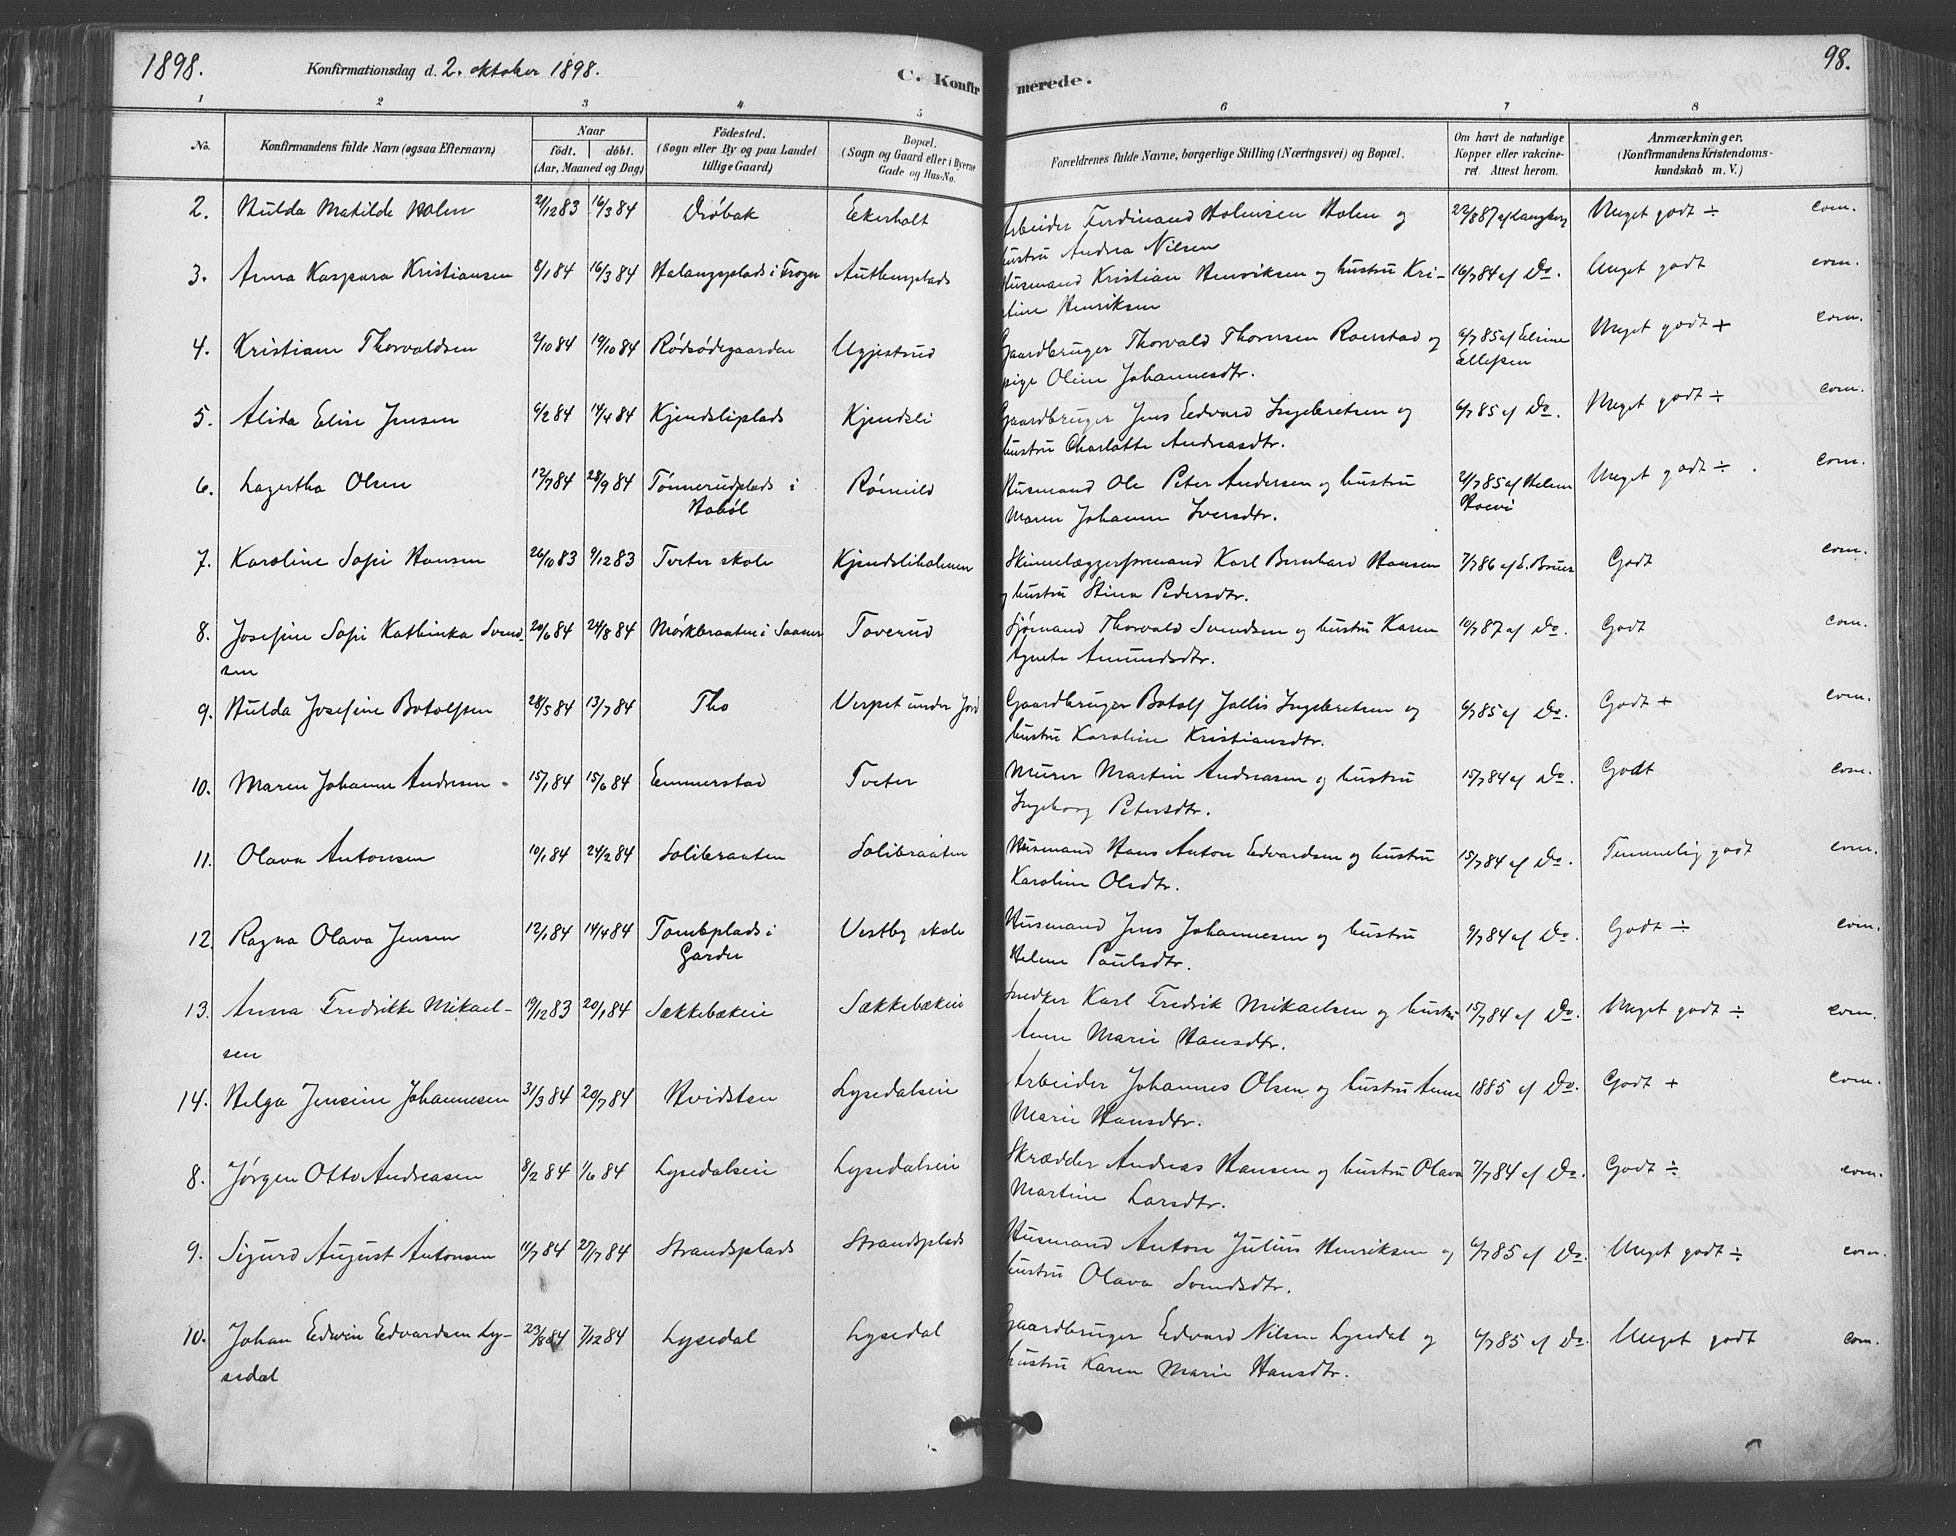 1898. Konfirmationsdag d. 2. oktober 1898. C. Konfirmerede. 98.
1 2 3 4 5 6 7 8
No. Konfirmandens fulde Navn (ogsaa Efternavn) Naar födt. döbt. (Aar, Maaned og Dag) Födested. (Sogn eller By og paa Landet tillige Gaard) Bopæl. (Sogn og Gaard eller i Byerne Gade og Hus-No. Forældrenes fulde Navne, borgerlige Stilling (Næringsvei) og Bopæl. Om havt de naturlige Kopper eller vakcineret. Attest herom. Anmærkninger, (Konfirmandens Kristendomskundskab m. V.)
2. Hulda Matilde Holm 21/12 83 16/3 84 Drøbak Ekerholt Arbeider Ferdinand Holmsen Holm og 22/8 87 af Langberg Meget godt ÷ com.
hustru Andrea Nilsen
3. Anna Kaspara Kristiansen 8/1 84 16/3 84 Halangsplads i Frogn Authenplads Husmand Kristian Henriksen og hustru Kri- 16/7 84 af Do. Meget godt com.
stine Henriksen
4. Kristian Thorvaldsen 2/10 84 19/10 84 Rødsødegaarden Ugjestrud Gaardbruger Thorvald Thorersen Roerstad og 6/7 85 af Elrine Meget godt + com.
pige Oline Johannesdtr. Ellefsen
5. Alida Elise Jensen 6/2 84 14/4 84 Kjendsliplads Kjendsli Gaardbruger Jens Edvard Ingebretsen og 6/7 85 af Do. Meget godt ÷ com.
hustru Charlotte Andreasdtr.
6. Lagertha Olsen 12/7 84 28/9 84 Tønnerudplads i Rømuld Husmand Ole Peter Andersen og hustru 2/7 85 af Helene Meget godt ÷ com.
Hobøl Maren Johanne Iversdtr.
7. Karoline Sofie Hansen 26/10 83 9/12 83 Tveter skole Kjendsliholmen Skinnelæggerformand Karl Bernhard Hansen 7/7 86 af E. Bruer Godt com.
og hustru Stina Pedersdtr.
8. Josefine Sofie Kathinka Svend- 20/6 84 24/8 84 Mørkbraaten i Saaner Toverud Sjømand Thorvald Svendsen og hustru Karen 10/7 87 af Do. Godt com.
sen Agnete Amundsdtr.
9. Hulda Josefine Botolfsen 28/5 84 13/7 84 Tho Verpet under Jøvd Gaardbruger Botolf Jallis Ingebretsen og 6/7 85 af Do. Godt + com.
hustru Karoline Kristiansdtr.
10. Maren Johanne Andresen 15/1 84 15/6 84 Emmerstad Tveter Murer Martin Andreasen og hustru 15/7 84 af Do. Godt com.
Ingeborg Petersdtr.
11. Olava Antonsen 10/1 84 24/2 84 Solibraaten Solibraaten Husmand Hans Anton Edvardsen og hustru 15/7 84 af Do. Temmelig godt com.
Karoline Olsdtr.
12. Ragna Olava Jensen 12/1 84 14/4 84 Tombplads i Vestby skole Husmand Jens Johannesen og hustru 9/7 84 af Do. Godt ÷ com.
Garder Helene Paulsdtr.
13. Anna Fredrikke Mikael- 19/12 83 20/1 84 Sækkebækeie Sækkebækeie Snedker Karl Fredrik Mikaelsen og hustru 15/7 84 af Do. Meget godt ÷ com.
sen Anne Marie Hansdtr.
14. Helga Jensine Johannesen 31/3 84 20/7 84 Hvidsten Lysedalseie Arbeider Johannes Olsen og hustru Anne 1885 af Do. Godt + com.
Marie Hansdtr.
8. Jørgen Otto Andreasen 8/2 84 1/6 84 Lysedalseie Lysedalseie Skrædder Andreas Hansen og hustru Olava 7/7 84 af Do. Godt ÷ com.
Martine Larsdtr.
9. Sigurd August Antonsen 11/7 84 27/7 84 Strandsplads Strandsplads Husmand Anton Julius Henriksen og 6/7 85 af Do. Meget godt ÷ com.
hustru Olava Svendsdtr.
10. Johan Edwin Edvardsen Ly- 23/8 84 7/12 84 Lysedal Lysedal Gaardbruger Edvard Nilsen Lysedal og 6/7 85 af Do. Meget godt com.
sedal hustru Karen Marie Hansdtr.